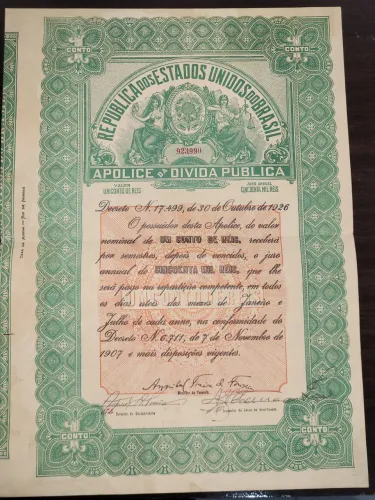 1 CONTO
1 CONTO
REPUBLICA DOS ESTADOS UNIDOS DO BRASIL
923990
APOLICE DA DIVIDA PUBLICA
VALOR
UM CONTO DE REIS
JURO ANNUAL
CINCOENTA MIL REIS
Decreto N. 17.499, de 30 de Outubro de 1926
O possuidor desta Apolice, do valor
nominal de UM CONTO DE REIS, receberá
por semestres, depois de vencidos, o juro
annual de CINCOENTA MIL REIS, que lhe
será pago na repartição competente, em todos
os dias uteis dos mezes de Janeiro e
Julho de cada anno, na conformidade do
Decreto N. 6.711, de 7 de Novembro de
1907 e mais disposições vigentes.
Annibal Freire da Fonseca
Ministro da Fazenda
1 CONTO
1 CONTO